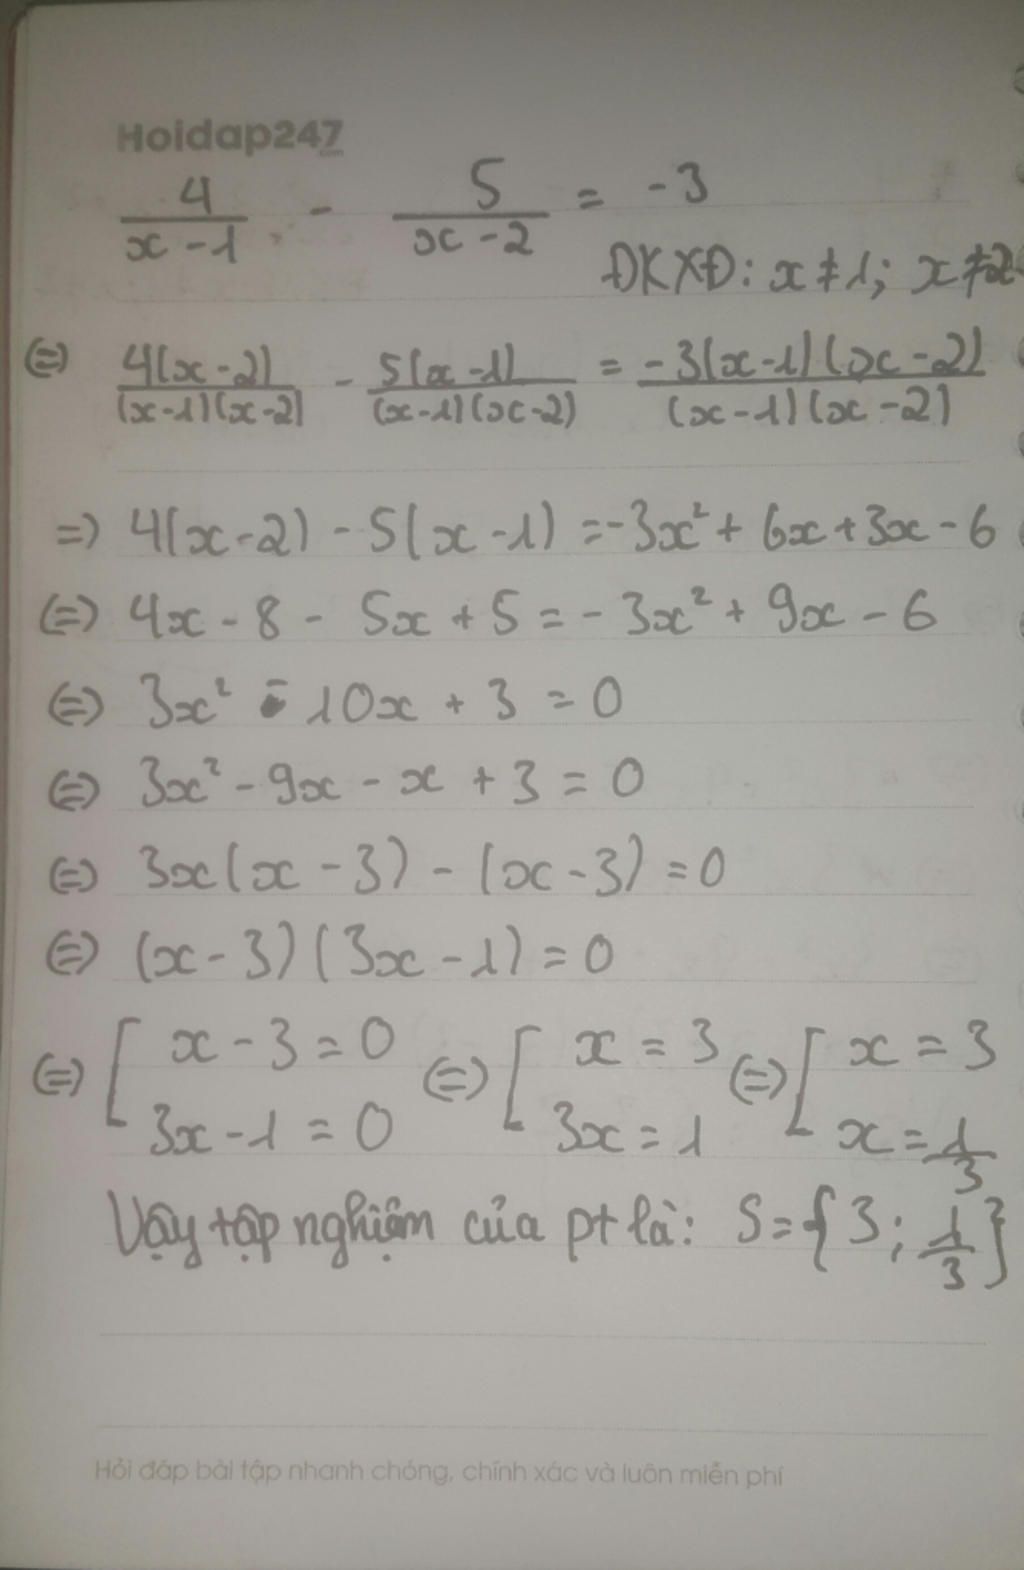 Hoidap247
.com
4/(x-1) - 5/(x-2) = -3
ĐKXĐ: x ≠ 1; x ≠ 2
(=) 4(x-2)/((x-1)(x-2)) - 5(x-1)/((x-1)(x-2)) = -3(x-1)(x-2)/((x-1)(x-2))
=) 4(x-2) - 5(x-1) = -3x² + 6x + 3x - 6
(=) 4x - 8 - 5x + 5 = -3x² + 9x - 6
(=) 3x² - 10x + 3 = 0
(=) 3x² - 9x - x + 3 = 0
(=) 3x(x-3) - (x-3) = 0
(=) (x-3)(3x-1) = 0
(=) [ x-3 = 0 (=) [ x = 3 (=) [ x = 3
3x-1 = 0 3x = 1 x = 1/3
Vậy tập nghiệm của pt là: S = {3; 1/3}
Hỏi đáp bài tập nhanh chóng, chính xác và luôn miễn phí